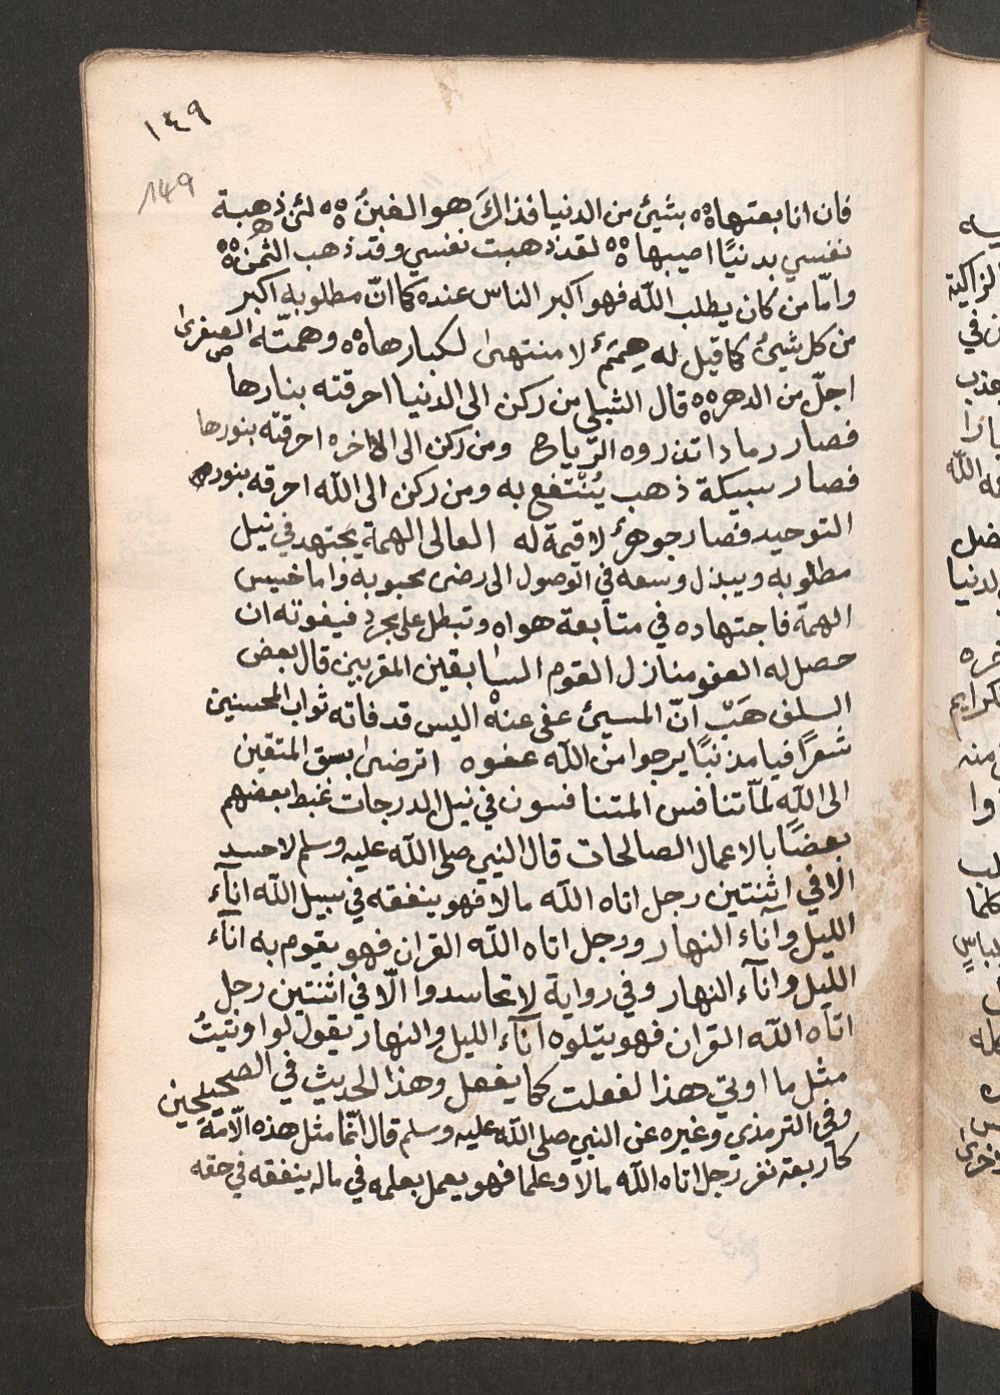 ١٤٩
149
فان انا بعتها ٥٥ بشيئ من الدنيا فذاكَ هو الغبنُ ٥٥ لئن ذهبة
نفسي بدنيًا اصيبها ٥٥ لقد ذهبت نفسي وقد ذهب الثمن ٥٥
وامّا من كان يطلب اللّه فهو اكبر الناس عنده كما انّ مطلوبه اكبر
من كل شيئُ كما قيل له هِمَمُ لا منتهىٰ لكبارها ٥٥ وهمتّه الصغرىٰ
اجلّ من الدهر ٥٥ قال الشبلي من ركن الى الدنيا احرقته بنارها
فصار رمادا تذروه الرّياح ومن ركن الى الاخره احرقتّه بنورها
فصار سبيكة ذهب يُنْتفع به ومن ركن الى اللّه احرقه بنور
التوحيد فصار جوهرُ لا قيمة له العالى الهمة يجتهد في نيل
مطلوبه ويبذل وسعه في الوصول الى رضى محبوبه فاما خسيس
الهمة فاجتهاده في متابعة هواه وتبطل على مجرد فيفوته ان
حصل له العفو منازل القوم السابقين المقربين قال بعض
السلف هَبّ انّ المسيئ عفى عنهْ اليس قد فاته ثواب المحسنين
شعرًا فيا مذنبًا يرجوا من اللّه عفوه اترضىٰ بسبق المتقين
الى اللّه لمّا تنافس المتنافسون في نيل الدرجات غبط بعضهم
بعضًا بالاعمال الصالحات قال النبي صلى اللّه عليه وسلم لا حسد
الّا في اثنتين رجل اتاه اللّه مالا فهو ينفقه في سبيل اللّه انآء
الليل وآناء النهار ورجل اتاه اللّه القران فهو يقوم به انآء
الليل وانآء النهار وفي رواية لا تحاسدوا الّا في اثنتين رجل
اتاه اللّه القران فهو يتلوه انآء الليل والنهار يقول لو اوتيتُ
مثل ما اوتي هذا لفعلت كما يفعل وهذا الحديث في الصحيحين
وفى الترمذي وغيره عن النبي صلى اللّه عليه وسلم قال انّما مثل هذه الاّمة
كاربعة نفر رجل اتاه اللّه مالا وعلما فهو يعمل بعلمه في ماله ينفقه في حقه